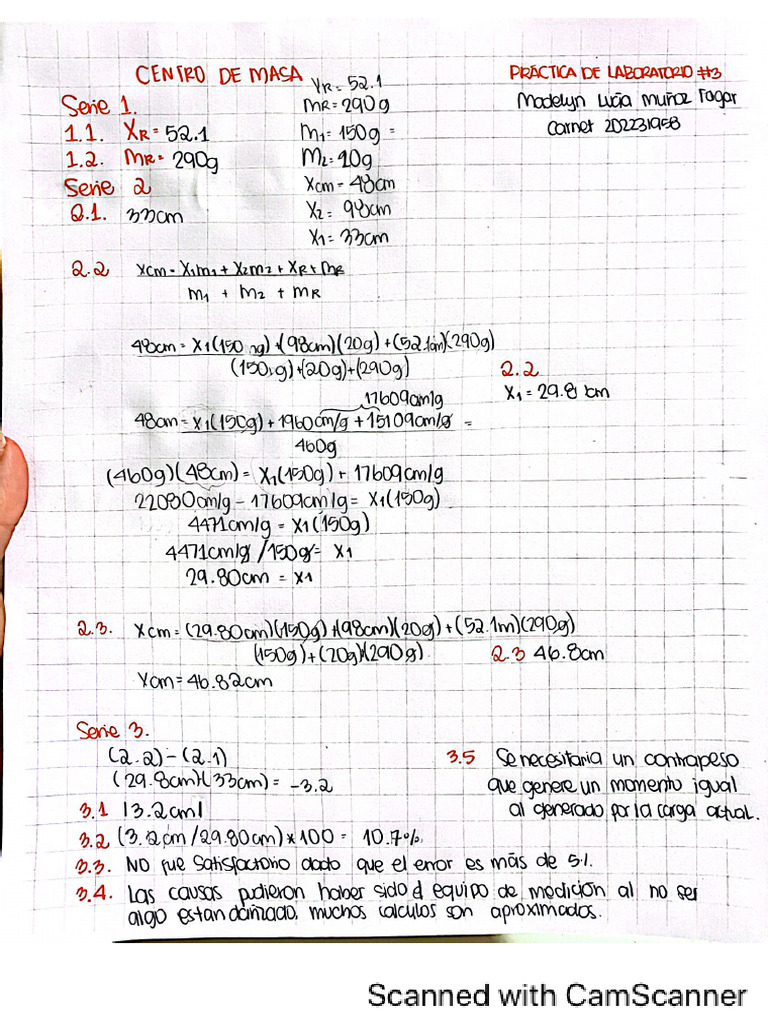 CENTRO DE MASA
PRÁCTICA DE LABORATORIO #3
Madelyn Lucia Muñoz Pagar
Carnet 202231958
Serie 1.
1.1. XR= 52.1
1.2. MR= 290g
Serie 2
2.1. 33cm
XR= 52.1
MR= 290g
M1= 150g =
M2= 20g
Xcm= 48cm
X2= 98cm
X1= 33cm
2.2 Xcm = X1m1 + X2m2 + XR+ MR
m1 + m2 + mR
48cm = X1(150 g) + (98cm)(20g) + (52.1cm)(290g)
(150g)+(20g)+(290g)
2.2
X1 = 29.8 cm
17609cm/g
48cm = X1(150g) + 1960cm/g + 15109cm/g =
460g
(460g)(48cm) = X1(150g) + 17609cm/g
22080cm/g - 17609cm/g = X1(150g)
4471cm/g = X1(150g)
4471cm/g /150g = X1
29.80cm = X1
2.3. Xcm = (29.80cm)(150g)+(98cm)(20g)+(52.1m)(290g)
(150g)+(20g)(290g)
2.3 46.8cm
Xcm = 46.82cm
Serie 3.
(2.2)-(2.1)
(29.8cm)(33cm) = -3.2
3.1 |3.2cm|
3.2 (3.2cm/29.80cm)*100 = 10.7%.
3.3. NO fue satisfactorio dado que el error es más de 5%.
3.4. Las causas pudieron haber sido el equipo de medicion al no ser
algo estandarizado, muchos calculos son aproximados.
3.5 Se necesitaria un contrapeso
que genere un momento igual
al generado por la carga actual.
Scanned with CamScanner